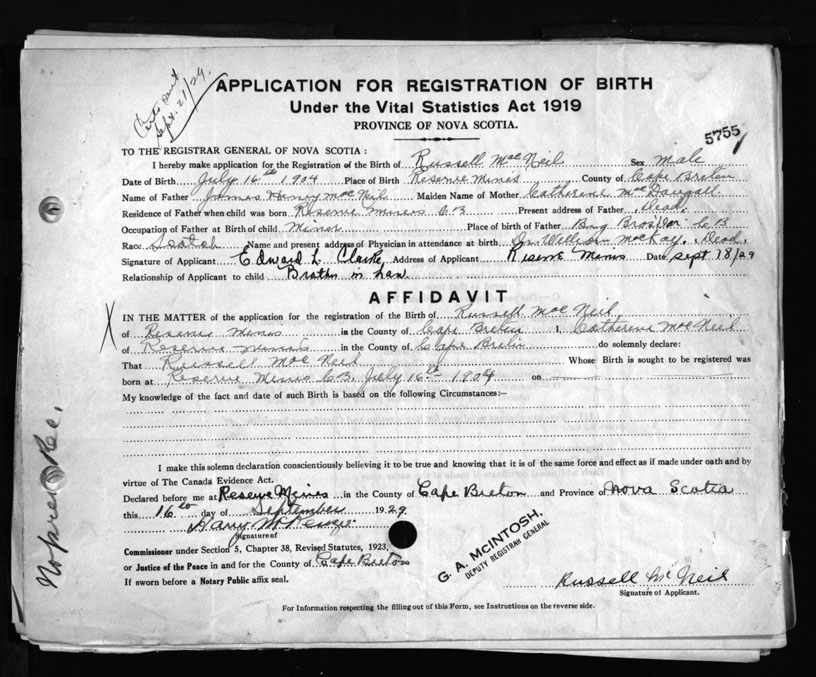 Sept. 21/29
APPLICATION FOR REGISTRATION OF BIRTH
Under the Vital Statistics Act 1919
PROVINCE OF NOVA SCOTIA.
5755
TO THE REGISTRAR GENERAL OF NOVA SCOTIA :
I hereby make application for the Registration of the Birth of Russell MacNeil Sex Male
Date of Birth July 16th 1904 Place of Birth Reserve Mines County of Cape Breton
Name of Father James Henry MacNeil Maiden Name of Mother Catherine MacDougall
Residence of Father when child was born Reserve Mines CB Present address of Father Dead,
Occupation of Father at Birth of child Miner Place of birth of Father Big CB
Race Scotch Name and present address of Physician in attendance at birth Dr. William McKay, Dead.
Signature of Applicant Edward L Clarke, Address of Applicant Reserve Mines Date Sept 18/29
Relationship of Applicant to child Brother in Law
AFFIDAVIT
X IN THE MATTER of the application for the registration of the Birth of Russell MacNeil,
of Reserve Mines in the County of Cape Breton I, Catherine MacNeil
of Reserve Mines in the County of Cape Breton do solemnly declare:
That Russell MacNeil Whose Birth is sought to be registered was
born at Reserve Mines CB, July 16th 1904 on
My knowledge of the fact and date of such Birth is based on the following Circumstances:—
I make this solemn declaration conscientiously believing it to be true and knowing that it is of the same force and effect as if made under oath and by
virtue of The Canada Evidence Act.
Declared before me at Reserve Mines in the County of Cape Breton and Province of Nova Scotia
this 16th day of September 1929
Harry
Signature of
Commissioner under Section 5, Chapter 38, Revised Statutes, 1923,
or Justice of the Peace in and for the County of Cape Breton
If sworn before a Notary Public affix seal.
G. A. McINTOSH,
DEPUTY REGISTRAR GENERAL
Russell McNeil
Signature of Applicant.
For Information respecting the filling out of this Form, see Instructions on the reverse side.